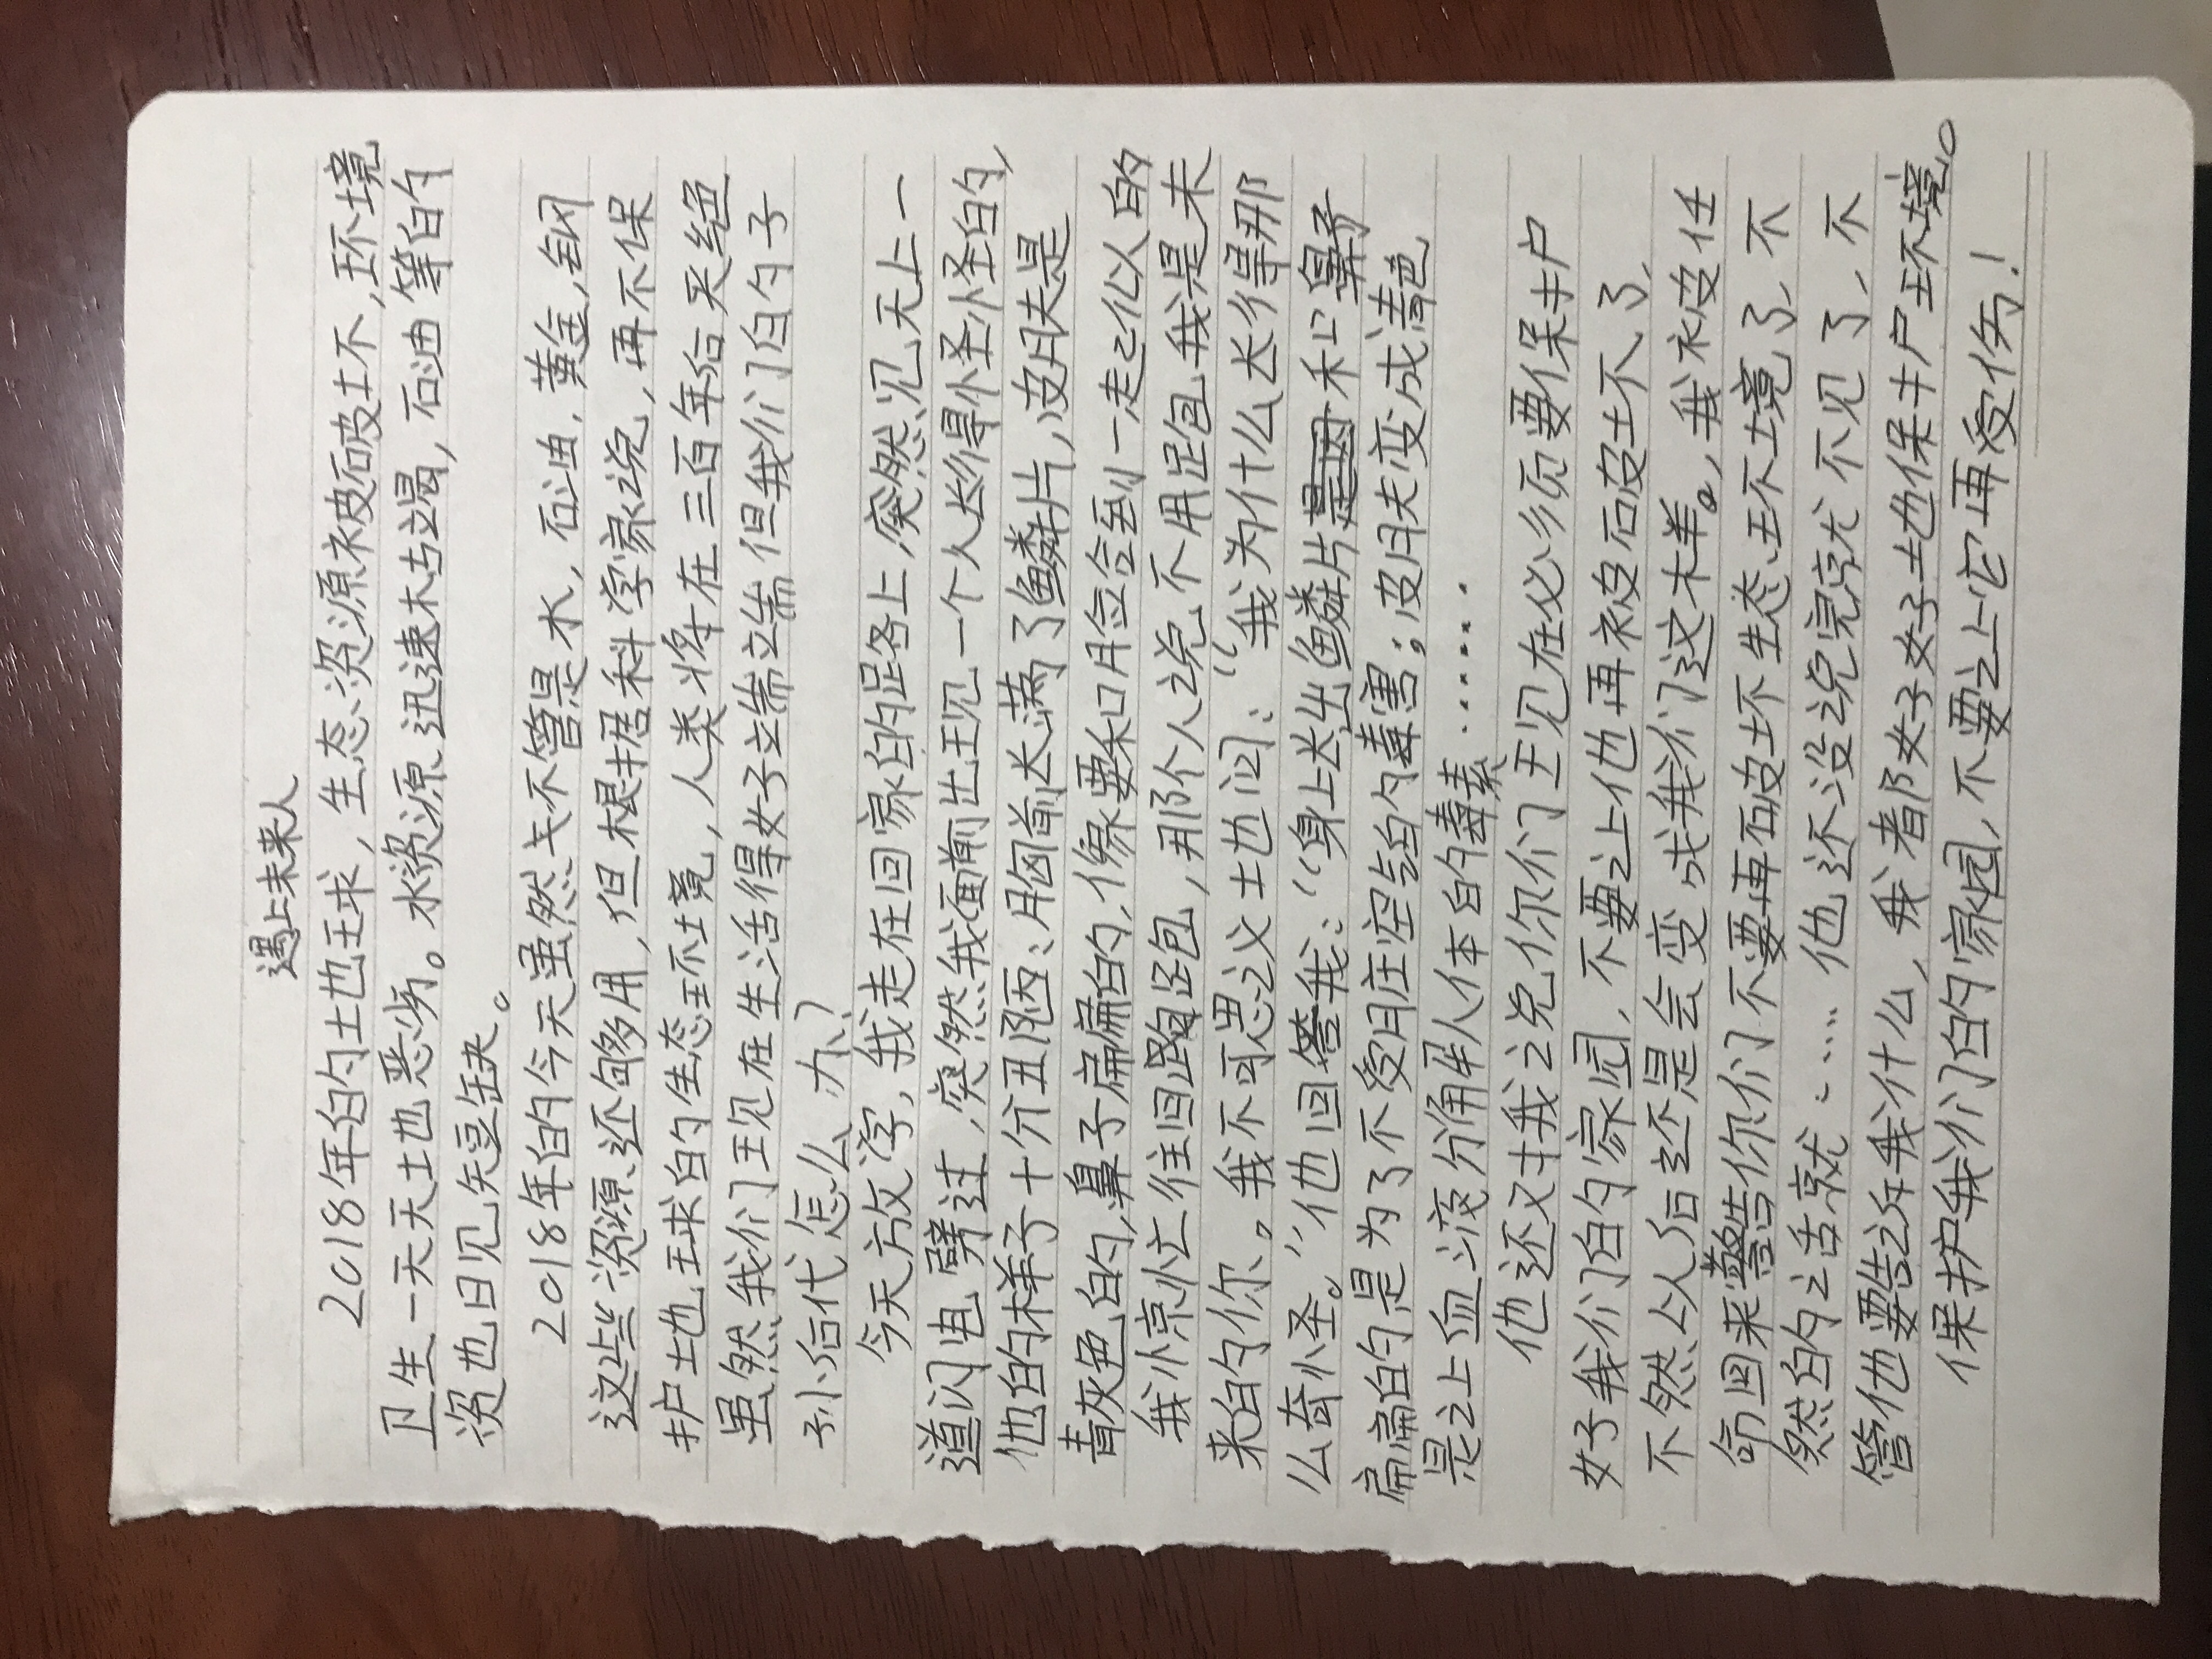 遇上未来人
2018年的地球，生态资源被破坏，环境
卫生一天天地恶劣。水资源迅速枯竭，石油等的
资也日见短缺。
2018年的今天虽然关不管是水，石油，黄金，钢
这些资源还够多用，但根据科学家说，再不保
护地球的生态环境，人类将在三百年后灭绝
虽然我们现在生活得好端端但我们的子
孙后代怎么办？
今天放学，我走在回家的路上，突然见天上一
道闪电劈过，突然我面前出现一个人长得怪怪的，
他的样子十分丑陋：胸前长满了鳞片，皮肤是
青灰色的，鼻子扁扁的，像要和脸合到一起似的
我惊忙往回跑跑，那个人说不用跑我是未
来的你。我不可思议地问：“我为什么长得那
么奇怪。”他回答我：“身上长出鳞片是因和鼻子
扁扁的是为了不受脏空气的毒害；皮肤变成青色
是让血液分解人体的毒素……
他还对我说你们现在必须要保护
好我们的家园，不要让他再被破坏了，
不然以后还是会变成我们这样。，我被任
命回来警告你们不要再破坏生态环境了，不
然的话就……他还没说完就不见了，不
管他要告诉我什么，我都好好地保护环境。
保护我们的家园，不要让它再受伤！